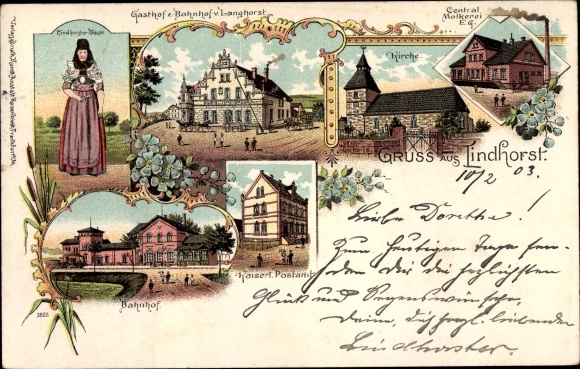 Gasthof z. Bahnhof v. Langhorst.
Central
Molkerei
E.G.
Lindhorster Tracht
Kirche
GRUSS AUS LINDHORST.
10/2 03.
Liebe Dorethe!
Zum heutigen Tage sen-
den Dir die herzlichsten
Glück und Segenswünsche,
Deine, Dich herzl. liebenden
Lindhorster.
Kaiserl. Postamt
Bahnhof.